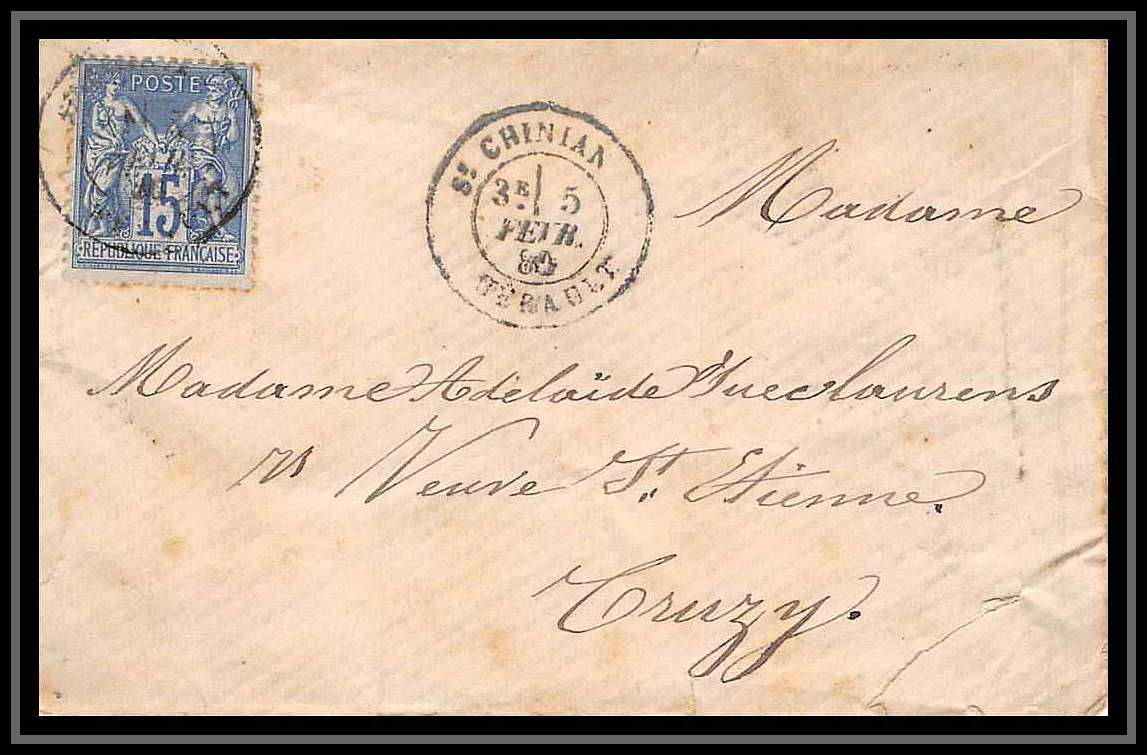 POSTE
15
RÉPUBLIQUE FRANÇAISE
St CHINIAN
3E 5
FEVR.
HÉRAULT
Madame
Madame Adelaïde
Veuve St. Etienne.
Cruzy.